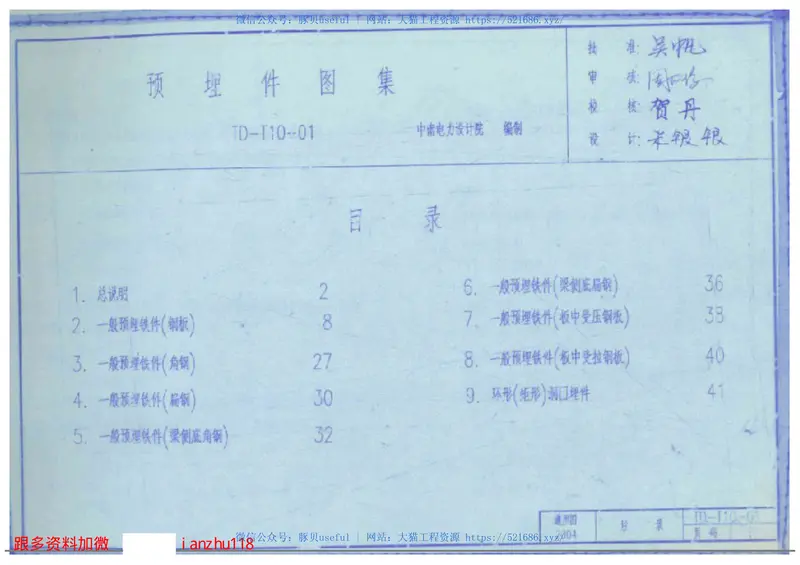 微信公众号：豚贝useful | 网站：大猫工程资源 https://521686.xyz/
预埋件图集
TD-T10-01
中南电力设计院 编制
批 准:
审 核:
校 核: 贺丹
设 计:
目 录
1. 总说明 2
2. 一般预埋铁件(钢板) 8
3. 一般预埋铁件(角钢) 27
4. 一般预埋铁件(扁钢) 30
5. 一般预埋铁件(梁侧底角钢) 32
6. 一般预埋铁件(梁侧底扁钢) 36
7. 一般预埋铁件(板中受压钢板) 38
8. 一般预埋铁件(板中受拉钢板) 40
9. 环形(矩形)洞口埋件 41
通用图
目 录
TD-T10-01
页号
跟多资料加微 i.anzhu118
微信公众号：豚贝useful | 网站：大猫工程资源 https://521686.xyz/